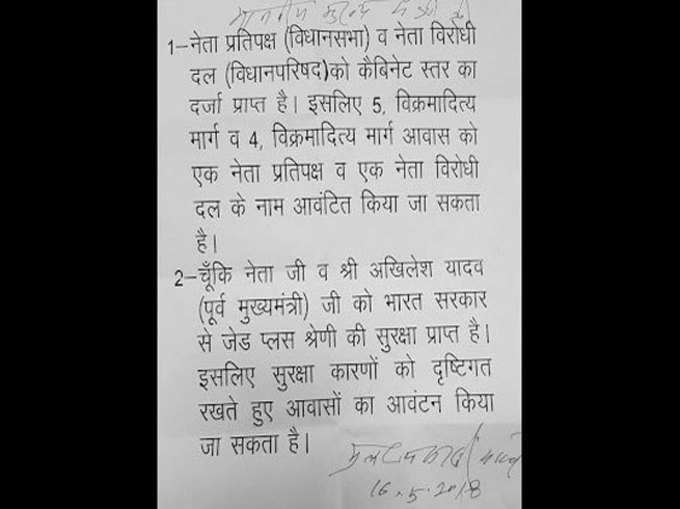 माननीय मुख्य मंत्री जी
1–नेता प्रतिपक्ष (विधानसभा) व नेता विरोधी
दल (विधानपरिषद)को कैबिनेट स्तर का
दर्जा प्राप्त है। इसलिए 5, विक्रमादित्य
मार्ग व 4, विक्रमादित्य मार्ग आवास को
एक नेता प्रतिपक्ष व एक नेता विरोधी
दल के नाम आवंटित किया जा सकता
है।
2–चूँकि नेता जी व श्री अखिलेश यादव
(पूर्व मुख्यमंत्री) जी को भारत सरकार
से जेड प्लस श्रेणी की सुरक्षा प्राप्त है।
इसलिए सुरक्षा कारणों को दृष्टिगत
रखते हुए आवासों का आवंटन किया
जा सकता है।
16.5.2018